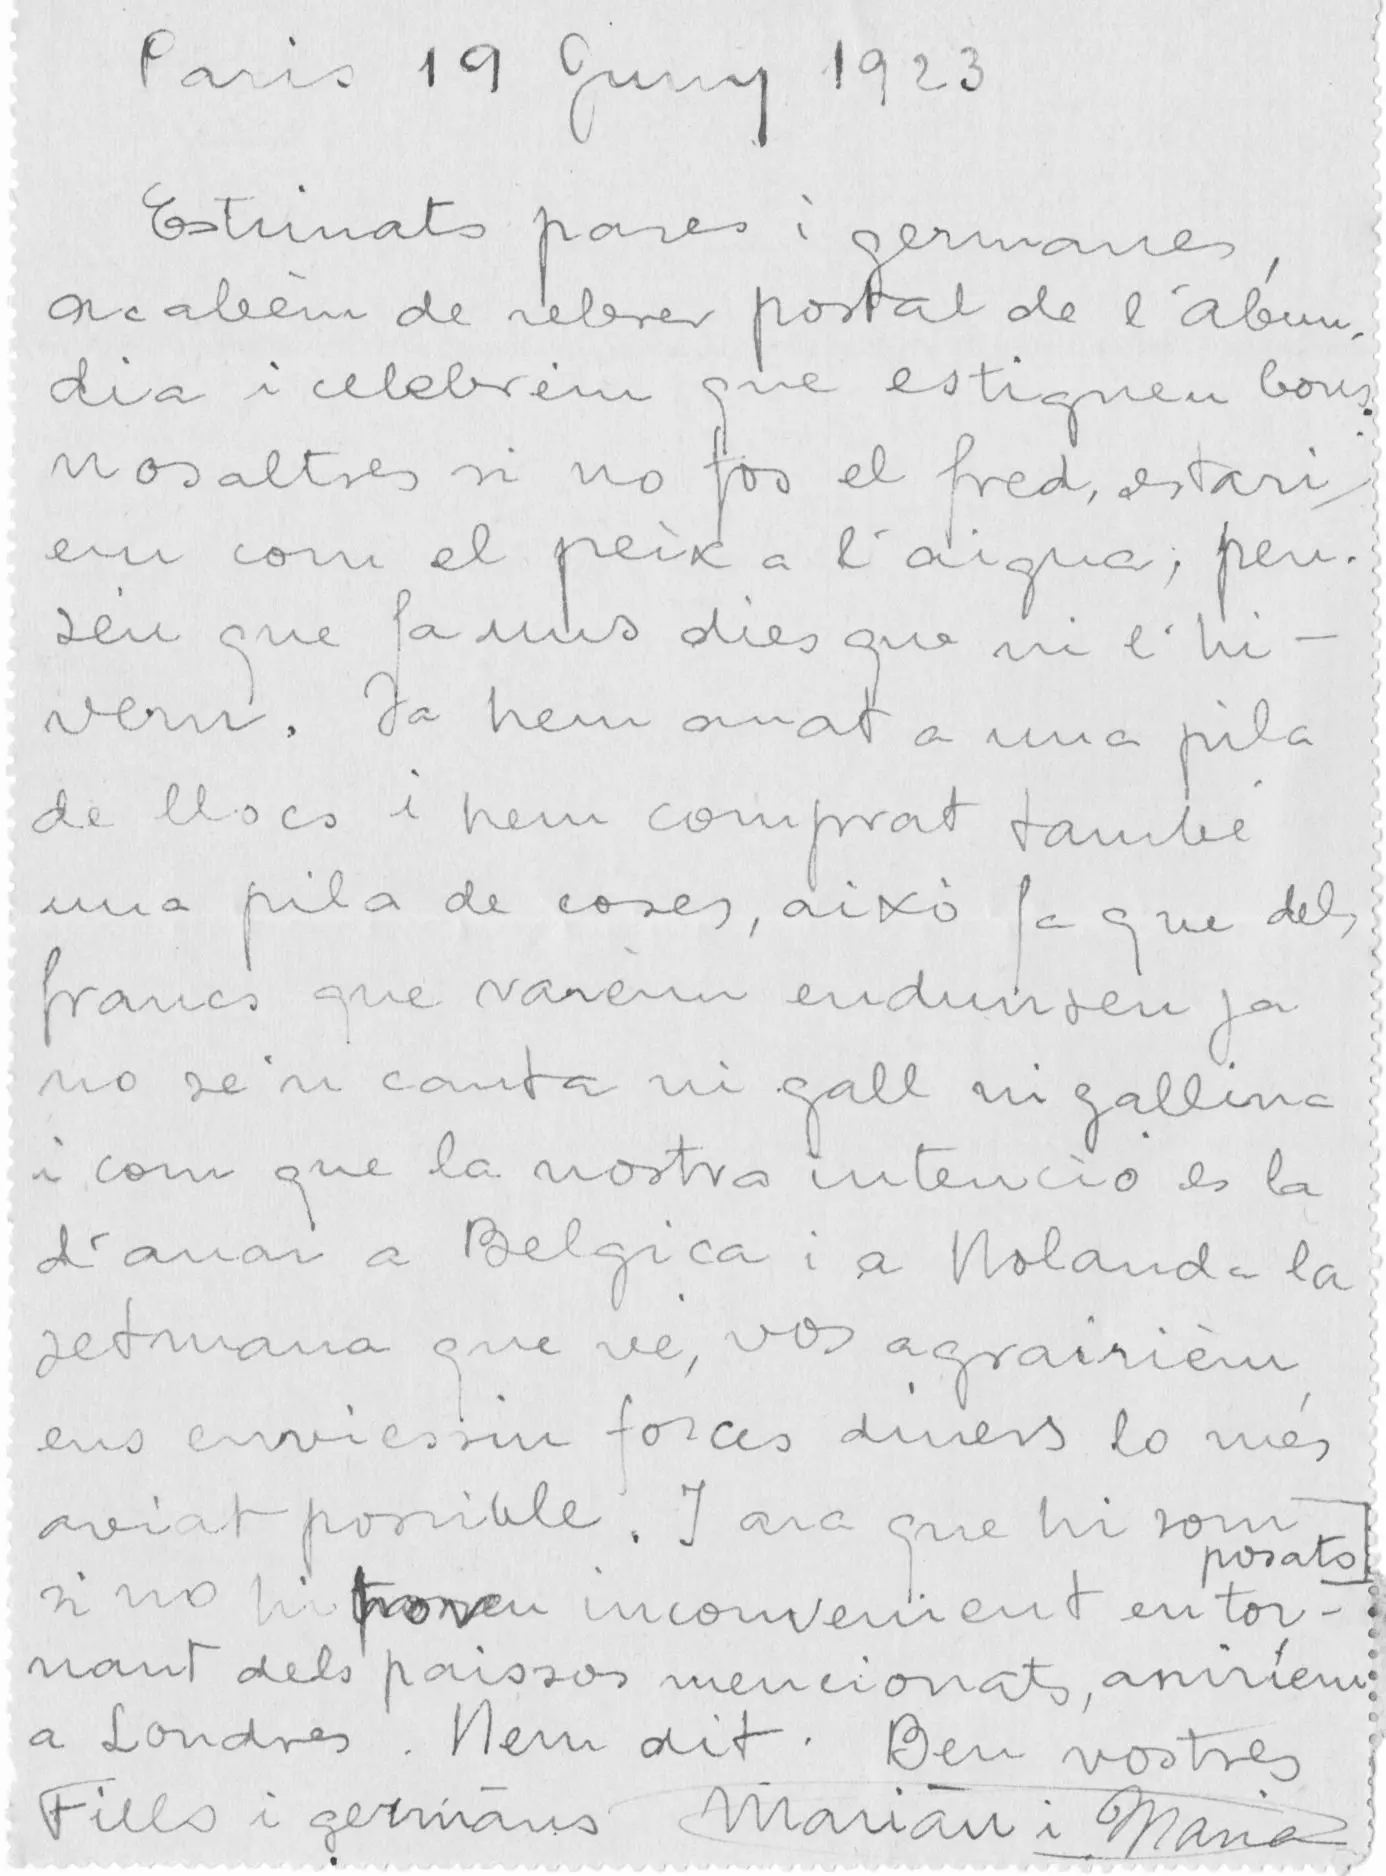 Paris 19 Juny 1923
Estimats pares i germanes,
acabèm de rebrer postal de l'Abun-
dia i celebrèm que estigueu bons.
Nosaltres si no fos el fred, estari-
em com el peix a l'aigua; pen-
sèu que fa uns dies que ni l'hi-
vern. Ja hem anat a una pila
de llocs i hem comprat també
una pila de coses, aixó fa que dels
francs que varèm endurseu ja
no se'n canta ni gall ni gallina
i com que la nostra intenció es la
d'anar a Belgica i a Holanda la
setmana que ve, vos agrairièm
ens enviessin forces diners lo més
aviat possible. I ara que hi som
posats
si no hi troveu inconvenient en tor-
nant dels paissos mencionats, aniríem
a Londres. Hem dit. Ben vostres
Fills i germans Marián i Maria